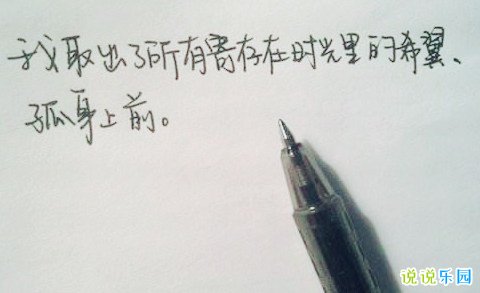 我取出了所有寄存在时光里的希翼、
孤身上前。
说说乐园